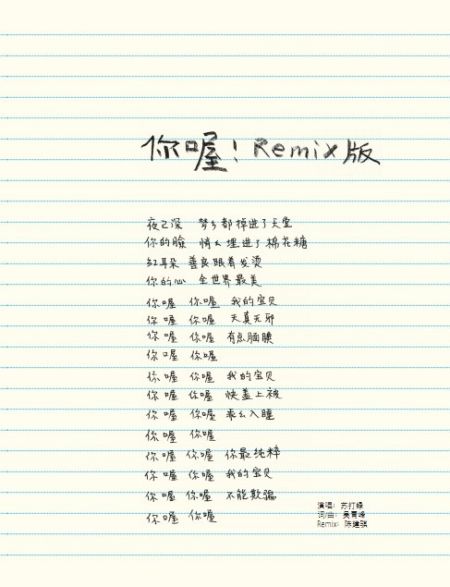 你喔！Remix版
夜已深 梦乡都掉进了天堂
你的脸 悄么埋进了棉花糖
红耳朵 善良跟着发烫
你的心 全世界最美
你喔 你喔 我的宝贝
你喔 你喔 天真无邪
你喔 你喔 有点腼腆
你喔 你喔
你喔 你喔 我的宝贝
你喔 你喔 快盖上被
你喔 你喔 乖么入睡
你喔 你喔
你喔 你喔 你最纯粹
你喔 你喔 我的宝贝
你喔 你喔 不能欺骗
你喔 你喔
演唱：苏打绿
词/曲：吴青峰
Remix：陈建骐